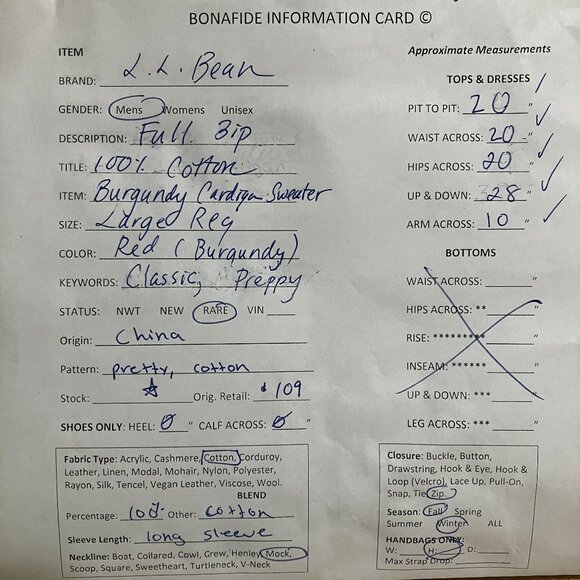 BONAFIDE INFORMATION CARD ©
ITEM
BRAND: L.L. Bean
GENDER: Mens Womens Unisex
DESCRIPTION: Full Zip
TITLE: 100% Cotton
ITEM: Burgundy Cardigan Sweater
SIZE: Large Reg
COLOR: Red (Burgundy)
KEYWORDS: Classic, Preppy
STATUS: NWT NEW RARE VIN
Origin: China
Pattern: pretty, cotton
Stock: ☆ Orig. Retail: $109
SHOES ONLY: HEEL: 0 " CALF ACROSS: 0 "
Fabric Type: Acrylic, Cashmere, Cotton, Corduroy,
Leather, Linen, Modal, Mohair, Nylon, Polyester,
Rayon, Silk, Tencel, Vegan Leather, Viscose, Wool.
BLEND
Percentage: 100% Other: cotton
Sleeve Length: long sleeve
Neckline: Boat, Collared, Cowl, Crew, Henley, Mock,
Scoop, Square, Sweetheart, Turtleneck, V-Neck
Approximate Measurements
TOPS & DRESSES
PIT TO PIT: 20 "
WAIST ACROSS: 20 "
HIPS ACROSS: 20 "
UP & DOWN: 28 "
ARM ACROSS: 10 "
BOTTOMS
WAIST ACROSS: "
HIPS ACROSS: ** "
RISE: ********* "
INSEAM: ****** "
UP & DOWN: *** "
LEG ACROSS: *** "
Closure: Buckle, Button,
Drawstring, Hook & Eye, Hook &
Loop (Velcro), Lace Up, Pull-On,
Snap, Tie, Zip.
Season: Fall Spring
Summer Winter ALL
HANDBAGS ONLY:
W: H: D:
Max Strap Drop: